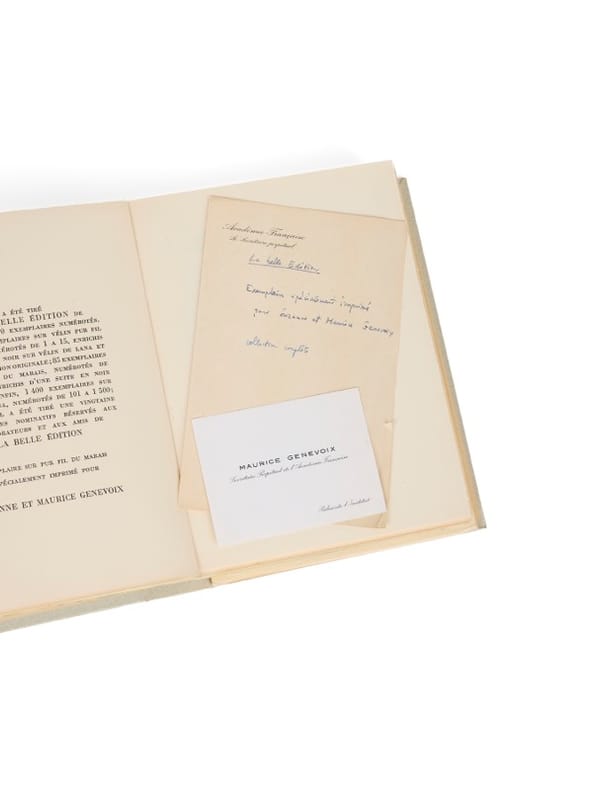 A ÉTÉ TIRÉ
BELLE ÉDITION DE
0 EXEMPLAIRES NUMÉROTÉS,
MPLAIRES SUR VÉLIN PUR FIL
MÉROTÉS DE 1 A 15, ENRICHIS
NOIR SUR VÉLIN DE LANA ET
ION ORIGINALE; 85 EXEMPLAIRES
DU MARAIS, NUMÉROTÉS DE
NRICHIS D'UNE SUITE EN NOIR
ENFIN, 1 400 EXEMPLAIRES SUR
NA, NUMÉROTÉS DE 101 A 1 500;
IL A ÉTÉ TIRÉ UNE VINGTAINE
ES NOMINATIFS RÉSERVÉS AUX
ORATEURS ET AUX AMIS DE
LA BELLE ÉDITION
PLAIRE SUR PUR FIL DU MARAIS
SPÉCIALEMENT IMPRIMÉ POUR
NNE ET MAURICE GENEVOIX
Académie Française
Le Secrétaire perpétuel
La belle Edition
Exemplaire spécialement imprimé
pour Suzanne et Maurice Genevoix
collection complète
MAURICE GENEVOIX
Secrétaire Perpétuel de l'Académie Française
Palais de l'Institut